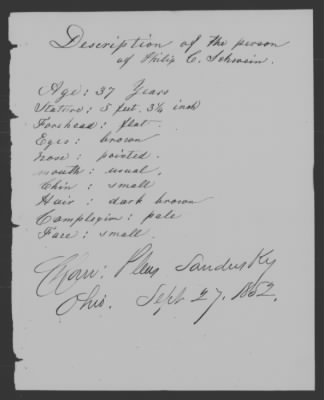 Description of the person
of Philip C. Schwein.
Age: 37 Years
Stature: 5 feet. 3¼ inch
Forehead: flat.
Eyes: brown
nose: pointed.
mouth: usual.
Chin: small
Hair: dark brown
Complexion: pale
Face: small.
Com: Pleas Sandusky
Ohio. Sept 27, 1852.